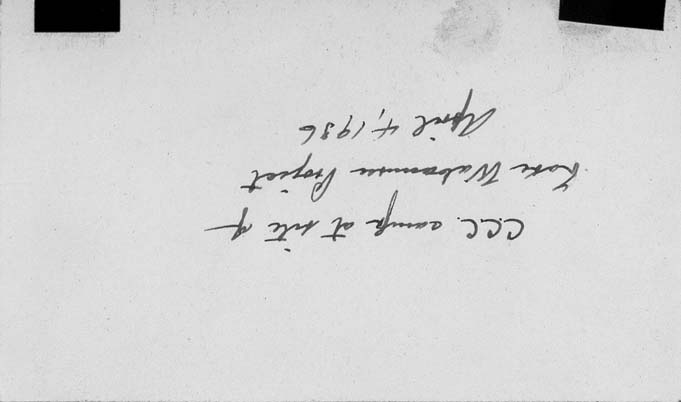 C.C.C. camp at site of
Lake Wabaunsee Project
April 4, 1936